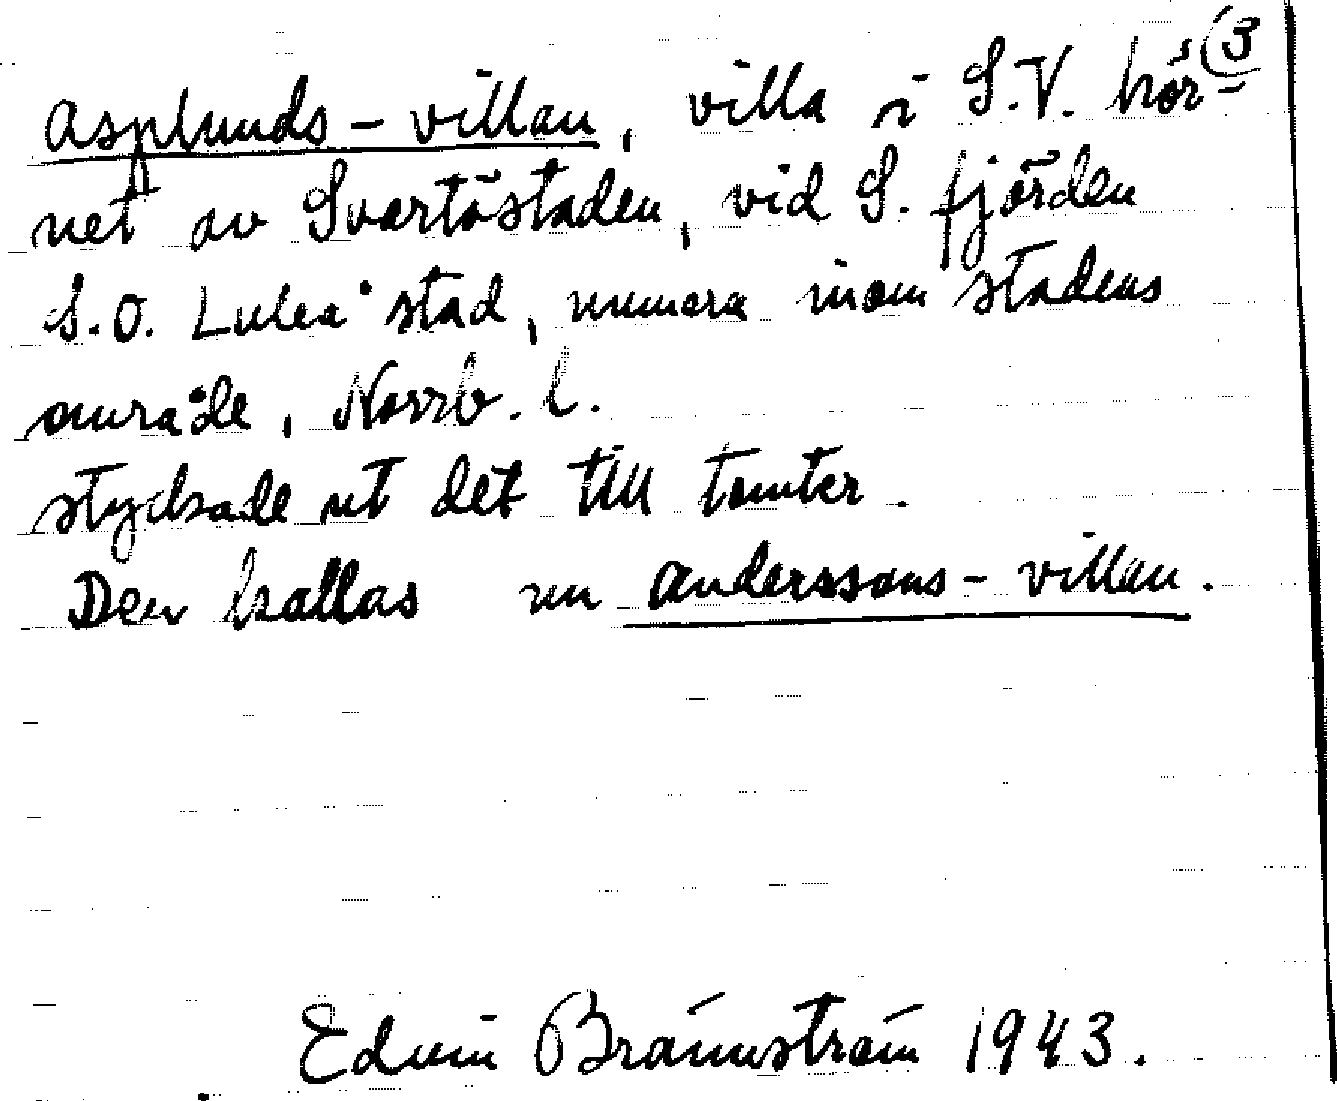 s. (3
Asplunds-villan, villa i S.V. hör-
net av Svartöstaden, vid S. fjärden
S.O. Luleå stad, numera inom stadens
område, Norrb. l.
styckade ut det till tomter.
Den kallas nu Anderssons-villan.
Edvin Brännström 1943.